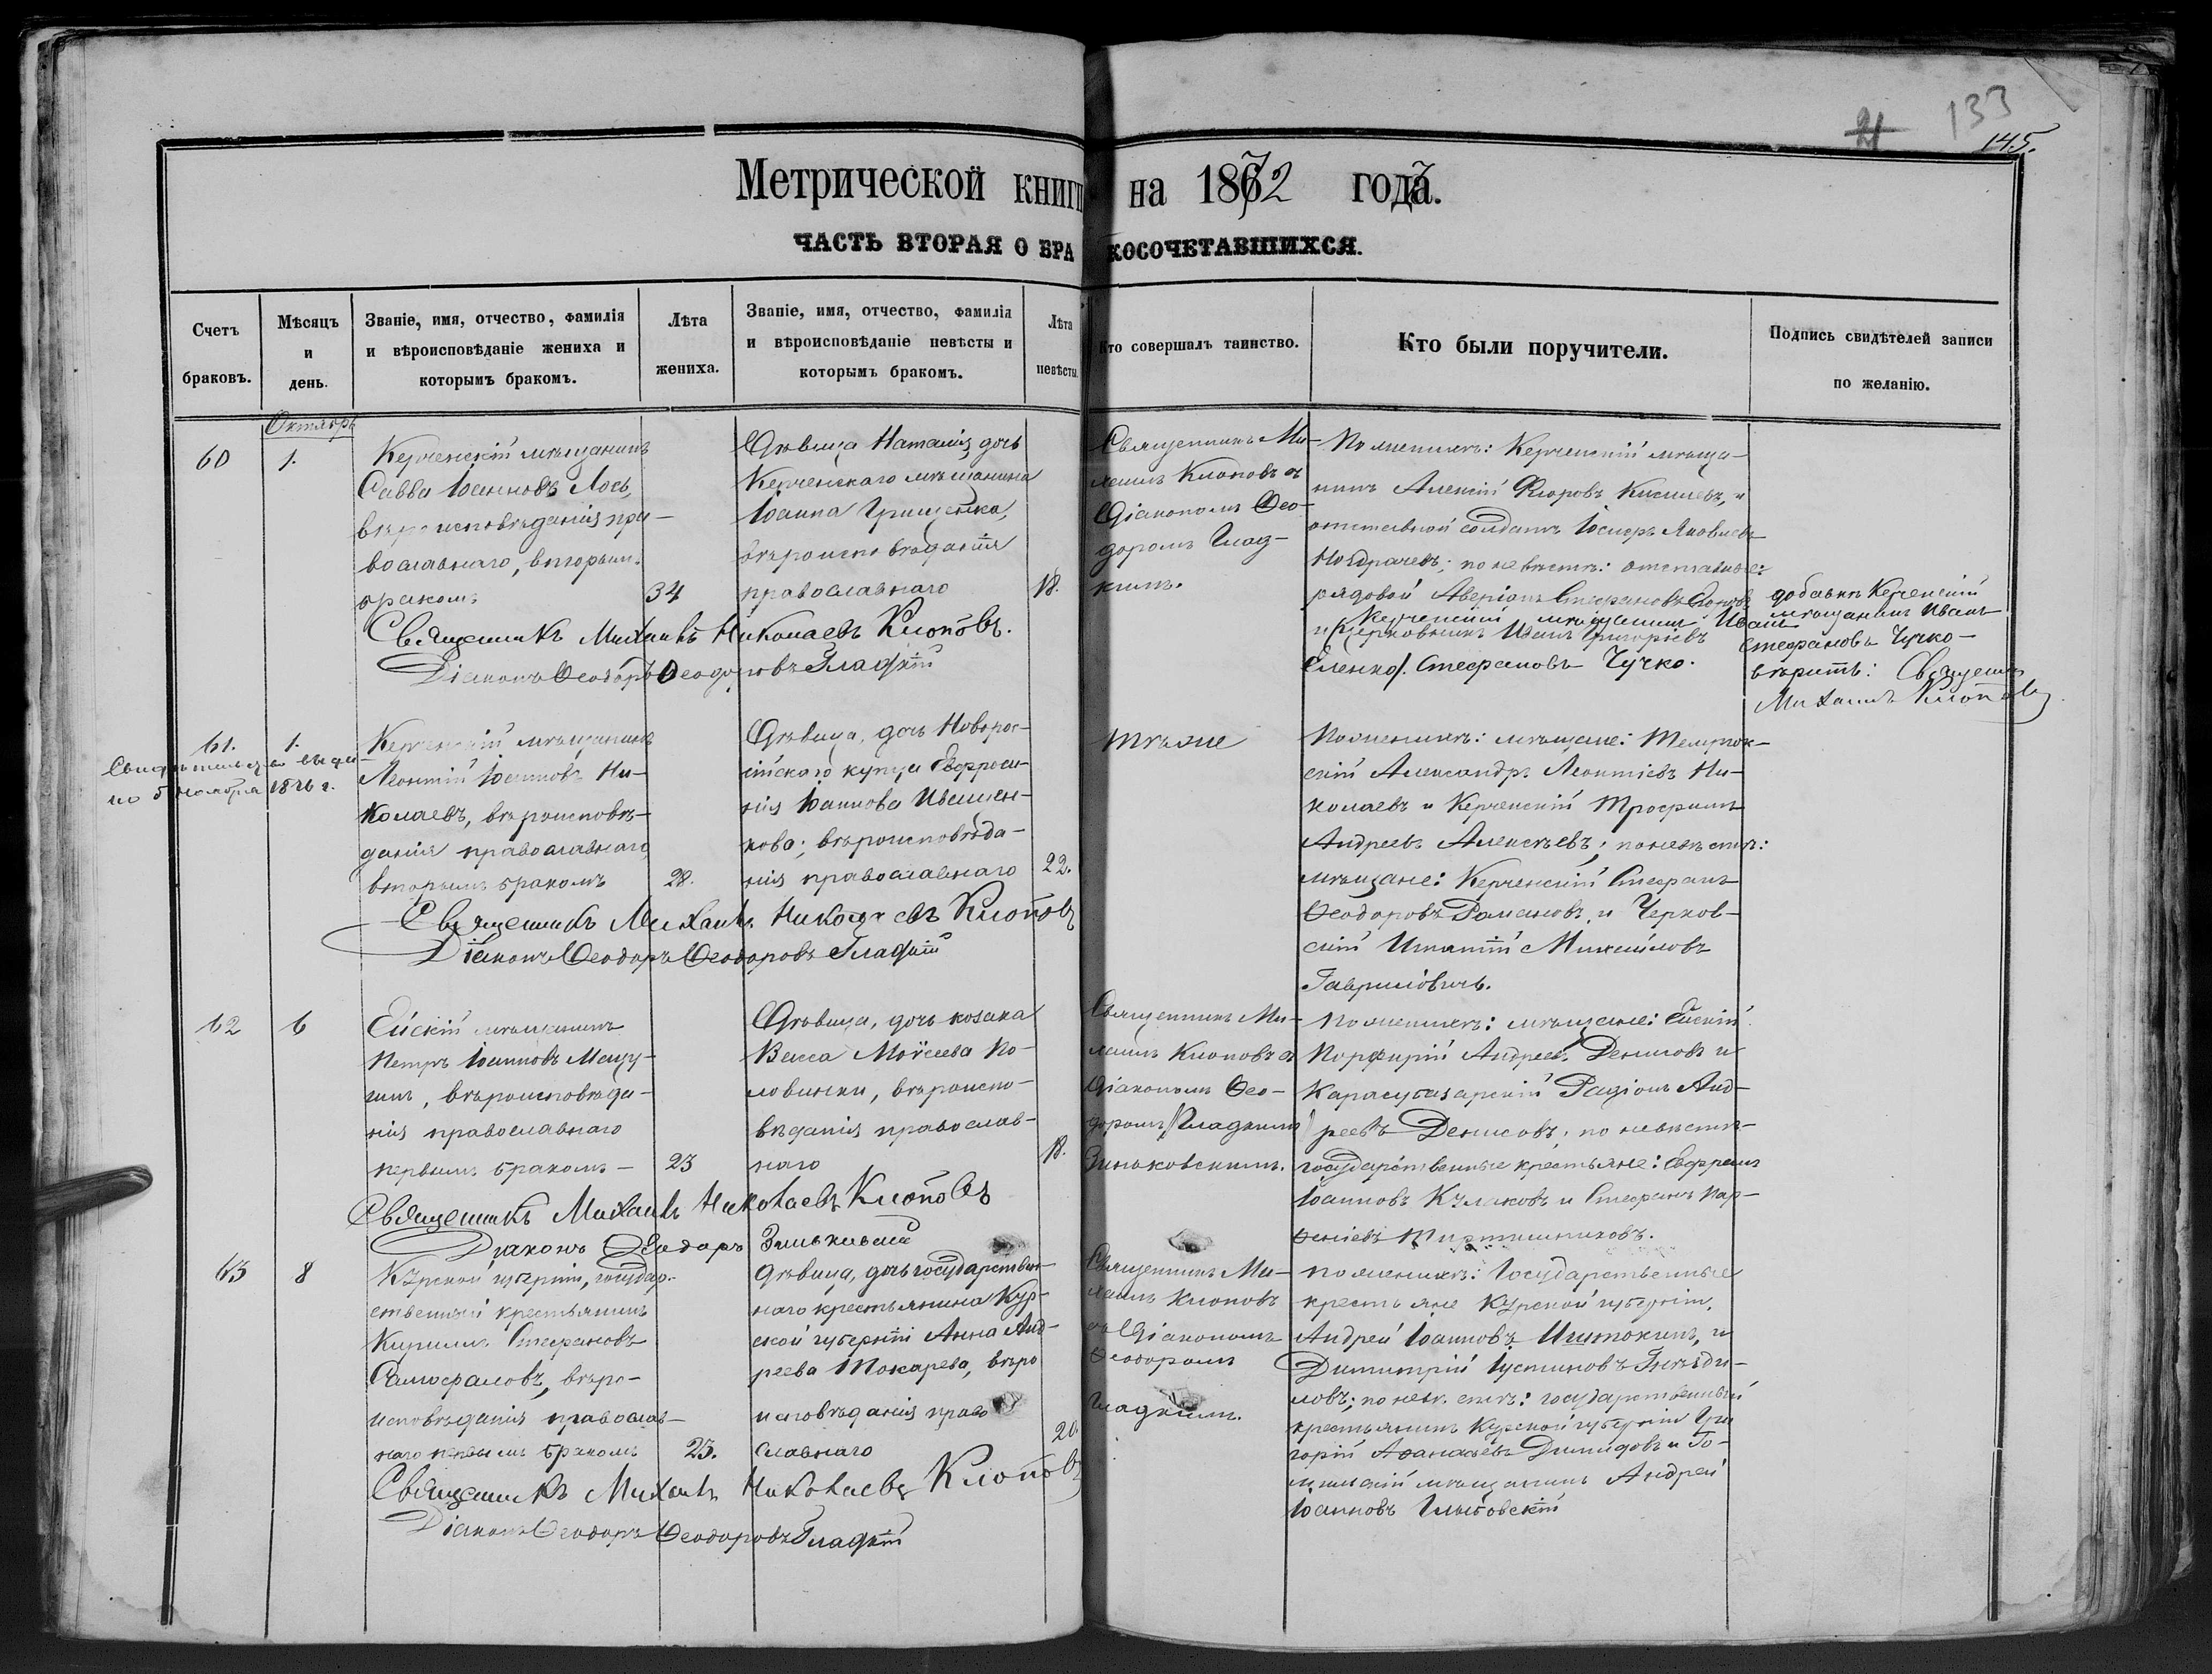 21 133
145.
Метрической книги на 1872 года.
ЧАСТЬ ВТОРАЯ О БРАКОСОЧЕТАВШИХСЯ.
Счетъ браковъ.
Мѣсяцъ и день.
Званіе, имя, отчество, фамилія и вѣроисповѣданіе жениха и которымъ бракомъ.
Лѣта жениха.
Званіе, имя, отчество, фамилія и вѣроисповѣданіе невѣсты и которымъ бракомъ.
Лѣта невѣсты.
Кто совершалъ таинство.
Кто были поручители.
Подпись свидѣтелей записи по желанію.
Октябрь
60
1.
Керченскій мѣщанинъ
Савва Іоанновъ Лось,
вѣроисповѣданія пра-
вославнаго, вторым.
бракомъ
34
Дѣвица Наталія дочь
Керченскаго мѣщанина
Іоанна Грищенко,
вѣроисповѣданія
православнаго
18.
Священникъ Ми-
хаилъ Клоповъ съ
Діакономъ Ѳео-
доромъ Глад-
кимъ.
По женихѣ: Керченскій мѣща-
нинъ Алексій
отставной солдатъ Іосифъ Яковлевъ
Ноздрачевъ; по невѣстѣ: отставные:
рядовой Аверіонъ Стефановъ
Керченскій мѣщанинъ Иванъ
и Церковникъ Иванъ Григоріевъ
Еленко. Стефановъ Чучко.
добавкѣ Керченскій
мѣщанинъ Иванъ
Стефановъ Чучко-
вѣрить: Священ
Михаилъ Клоповъ
Священникъ Михаилъ Николаевъ Клоповъ.
Діаконъ Ѳеодоръ Ѳеодоровъ Гладкій
61.
1.
Свидѣтельство выда-
но 5 ноября 1876 г.
Керченскій мѣщанинъ
Леонтій Іоанновъ Ни-
колаевъ, вѣроисповѣ-
данія православнаго,
вторымъ бракомъ
28.
Дѣвица, дочь Новорос-
сійскаго купца Евфроси-
нія Іоаннова Ивашен-
кова; вѣроисповѣда-
нія православнаго
22.
Тѣже
По женихѣ: мѣщане: Темрюк-
скій Александръ Леонтіевъ Ни-
колаевъ и Керченскій Трофимъ
Андреевъ Алексѣевъ; по невѣстѣ:
мѣщане: Керченскій Стефанъ
Ѳеодоровъ Романовъ, и Черков-
скій Игнатій Михайловъ
Гавриловичъ.
Священникъ Михаилъ Николаевъ Клоповъ
Діаконъ Ѳеодоръ Ѳеодоровъ Гладкій
62
6
Ейскій мѣщанинъ
Петръ Іоанновъ
вѣроисповѣда-
нія православнаго
первымъ бракомъ –
23
Дѣвица, дочь козака
Васса Моѵсеева По-
ловинки, вѣроиспо-
вѣданія православ-
наго
18.
Священникъ Ми-
хаилъ Клоповъ съ
Діакономъ Ѳео-
доромъ Гладкимъ
Зиньковскимъ.
По женихѣ: мѣщане: Ейскій
Порфирій Андреев. Денисовъ и
Карасубазарскій Радіонъ Анд-
реевъ Денисовъ; по невѣстѣ-
государственные крестьяне: Евфремъ
Іоанновъ Кулаковъ и Стефанъ Пар-
ѳеніевъ
Священникъ Михаилъ Николаевъ Клоповъ
Діаконъ Ѳеодоръ Зиньковскій
63
8
Курской губерніи, государ-
ственный крестьянинъ
Кириллъ Стефановъ
вѣро-
исповѣданія православ-
наго первымъ бракомъ
23.
Дѣвица, дочь государствен-
наго крестьянина Кур-
ской губерніи Анна Анд-
реева Токарева, вѣро
исповѣданія право
славнаго
20.
Священникъ Ми-
хаилъ Клоповъ
съ Діакономъ
Ѳеодоромъ
Гладкимъ.
по женихѣ: Государственные
крестьяне Курской губерніи,
Андрей Іоанновъ и
Димитрій Іустиновъ Гнѣзди-
ловъ; по невѣстѣ: государственный
крестьянинъ Курской губерніи Гри
горій Аѳанасіевъ Димидовъ и
мѣщанинъ Андрей
Іоанновъ
Священникъ Михаилъ Николаевъ Клоповъ
Діаконъ Ѳеодоръ Ѳеодоровъ Гладкій